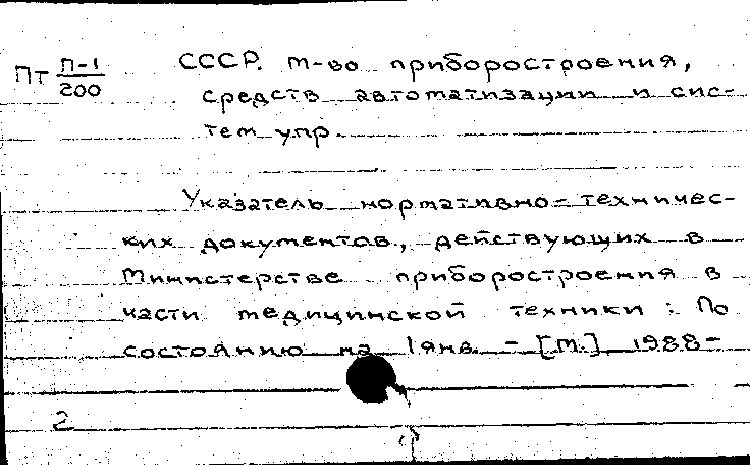 Пт П-1/200
СССР. М-во приборостроения,
средств автоматизации и сис-
тем упр.
Указатель нормативно-техничес-
ких документов, действующих в
Министерстве приборостроения в
части медицинской техники: По
состоянию на 1 янв. - [М.] 1988-
2